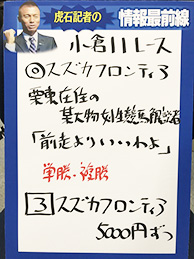 虎石記者の
情報最前線
小倉11レース
◎スズカフロンティア
栗東在住の
某大物女性競馬関係者
「前走よりいいわよ」
単勝・複勝
3スズカフロンティア
5000円ずつ